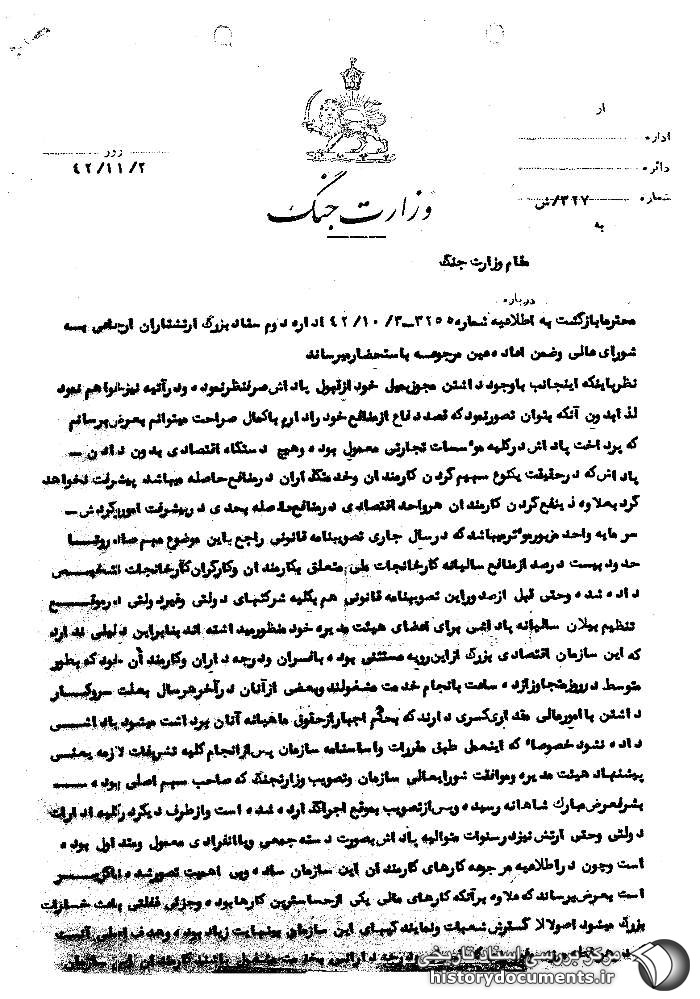 از
اداره
روز
دائره
۴۲/۱۱/۲
شماره ۳۲۷/ش
به
وزارت جنگ
مقام وزارت جنگ
درباره
محترما بازگشت به اطلاعیه شماره ۳۲۵۵–۴۲/۱۰/۳ اداره دوم ستاد بزرگ ارتشتاران ارسالی بسه
شورای عالی وضمن اعاده عین مرجوعه باستحضار میرساند
نظر باینکه اینجانب باوجود داشتن مجوز بمیل خود از قبول پاداش صرفنظر نموده و در آتیه نیز نخواهم نمود
لذا بدون آنکه بتوان تصور نمود که قصد دفاع از منافع خود را دارم باکمال صراحت میتوانم بعرض برسانم
که پرداخت پاداش در کلیه موسسات تجارتی معمول بوده و هیچ دستگاه اقتصادی بدون دادن –
پاداش که در حقیقت یکنوع سهیم کردن کارمندان و خدمتگذاران در منافع حاصله میباشد پیشرفت نخواهد
کرد بعلاوه ذینفع کردن کارمندان هر واحد اقتصادی در منافع حاصله بحدی در پیشرفت امور و گردش –
سرمایه واحد مزبور موثر میباشد که در سال جاری تصویبنامه قانونی راجع باین موضوع مهم صادر و تا
حدود بیست درصد از منافع سالیانه کارخانجات ملی متعلق بکارمندان و کارگران کارخانجات تشخیص
داده شده و حتی قبل از صدور این تصویبنامه قانونی هم کلیه شرکتهای دولتی و غیر دولتی در موقع
تنظیم بیلان سالیانه پاداشی برای اعضای هیئت مدیره خود منظور میداشته اند بنابراین دلیلی ندارد
که این سازمان اقتصادی بزرگ از این رویه مستثنی بوده بافسران و درجه داران و کارمندان خود که بطور
متوسط در روز متجاوز از ده ساعت بانجام خدمت مشغولند و بعضی از آنان در آخر هر سال بعلت سروکار
داشتن با امور مالی مقداری کسری دارند که بحکم اجبار از حقوق ماهیانه آنان برداشت میشود پاداشی
داده نشود خصوصا که اینعمل طبق مقررات و اساسنامه سازمان پس از انجام کلیه تشریفات لازمه یعنی
پیشنهاد هیئت مدیره و موافقت شورایعالی سازمان و تصویب وزارتجنگ که صاحب سهم اصلی بوده –
بشرفعرض مبارک شاهانه رسیده و پس از تصویب بموقع اجرا گذارده شده است و از طرف دیگر در کلیه ادارات
دولتی و حتی ارتش نیز در سنوات متوالیه پاداش بصورت دسته جمعی و یا انفرادی معمول و متداول بوده
است و چون در اطلاعیه مرجوعه کارهای کارمندان این سازمان ساده و بی اهمیت تصور شده ناگزیر
است بعرض برساند که علاوه بر آنکه کارهای مالی یکی از حساسترین کارها بوده و جزئی غفلتی باعث خسارات
بزرگ میشود اصولا لا گسترش شعبات و نمایندگیهای این سازمان بینهایت زیاد بوده و هدف اصلی آنست
مرکز بررسی اسناد تاریخی
historydocuments.ir